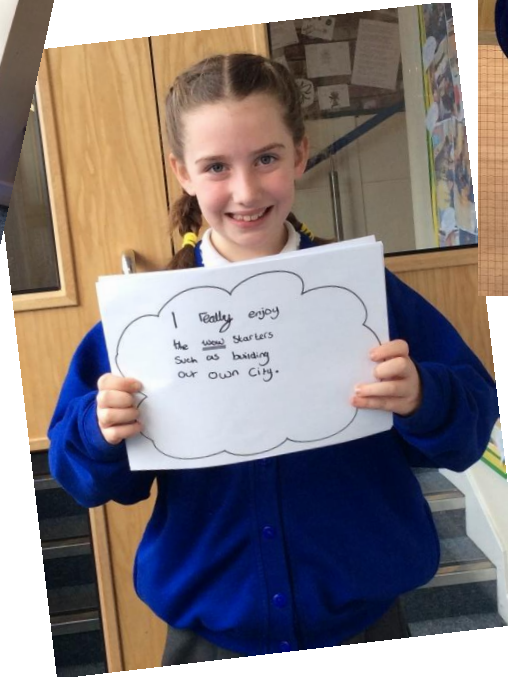 I really enjoy
the wow starters
Such as building
our own City.